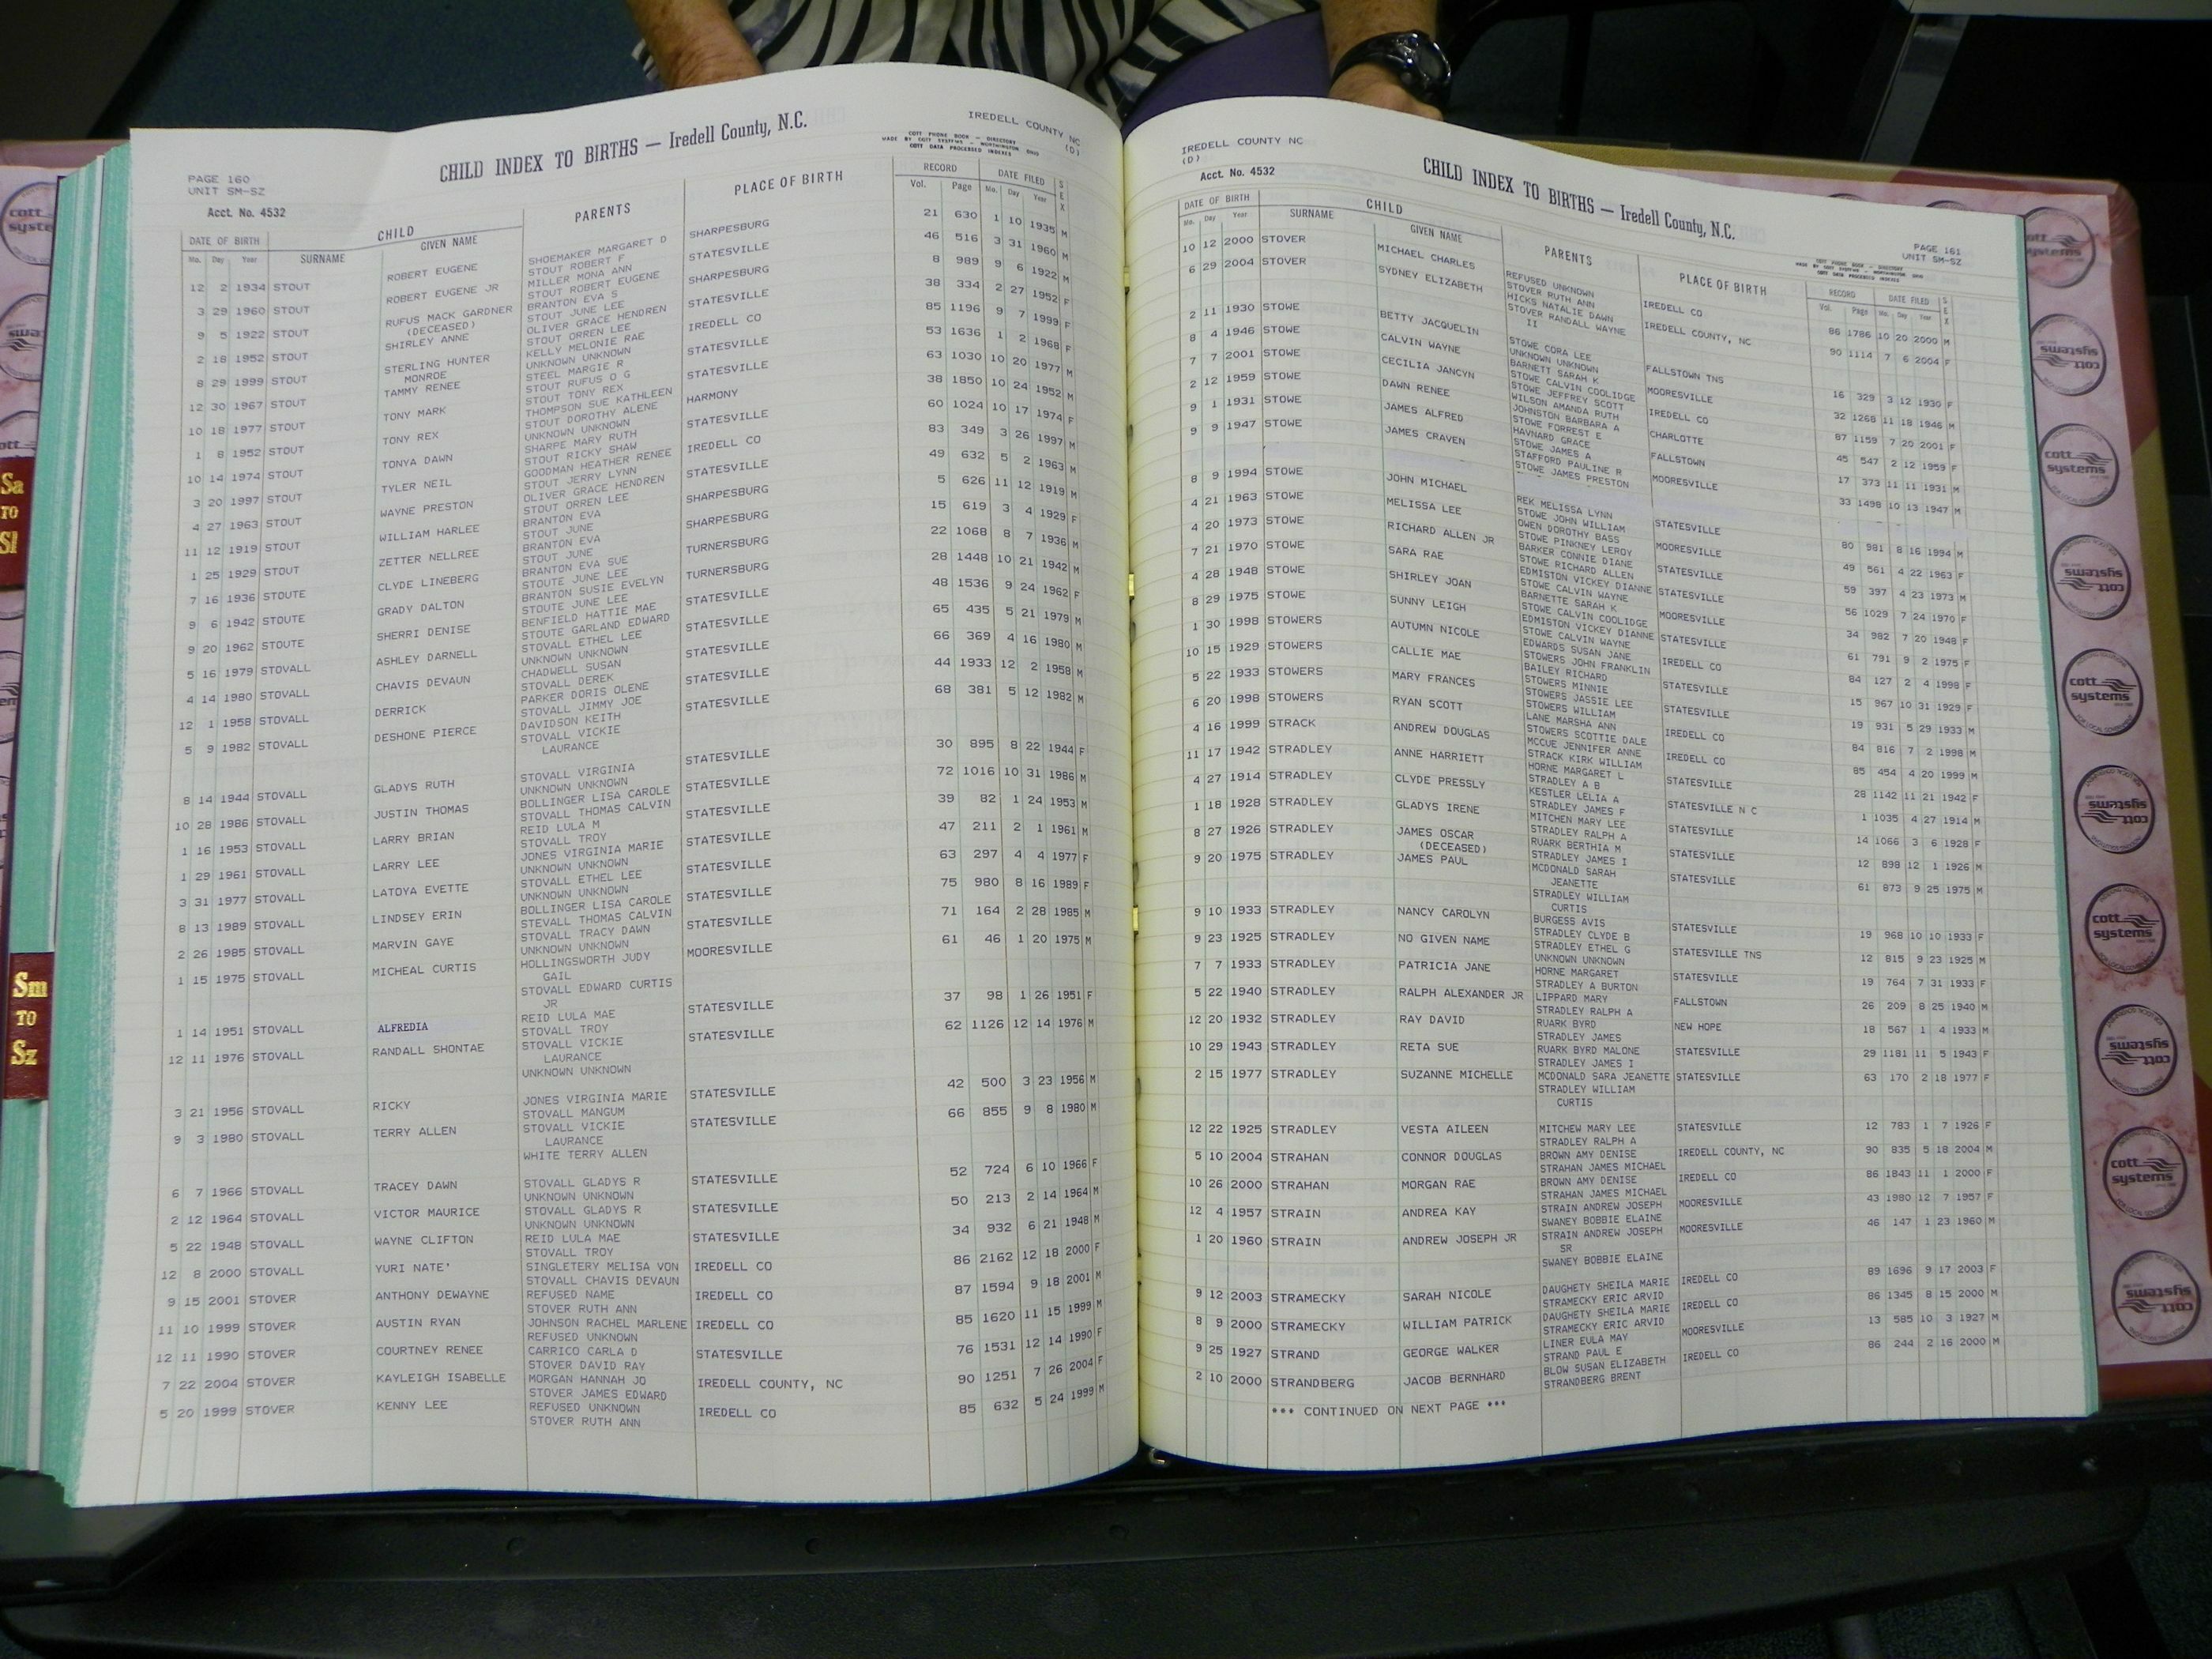 IREDELL COUNTY NC
(D)
CHILD INDEX TO BIRTHS — Iredell County, N.C.
COTT PHONE BOOK — DIRECTORY
MADE BY COTT SYSTEMS — WORTHINGTON OHIO
COTT DATA PROCESSED INDEXES
PAGE 160
UNIT SM-SZ
Acct. No. 4532
DATE OF BIRTH CHILD PARENTS PLACE OF BIRTH RECORD DATE FILED SEX
Mo. Day Year SURNAME GIVEN NAME Vol. Page Mo. Day Year
12 2 1934 STOUT ROBERT EUGENE SHOEMAKER MARGARET D SHARPESBURG 21 630 1 10 1935 M
STOUT ROBERT F
3 29 1960 STOUT ROBERT EUGENE JR MILLER MONA ANN STATESVILLE 46 516 3 31 1960 M
STOUT ROBERT EUGENE
9 5 1922 STOUT RUFUS MACK GARDNER BRANTON EVA S SHARPESBURG 8 989 9 6 1922 M
(DECEASED) STOUT JUNE LEE
2 18 1952 STOUT SHIRLEY ANNE OLIVER GRACE HENDREN STATESVILLE 38 334 2 27 1952 F
STOUT ORREN LEE
8 29 1999 STOUT STERLING HUNTER KELLY MELONIE RAE IREDELL CO 85 1196 9 7 1999 F
MONROE UNKNOWN UNKNOWN
12 30 1967 STOUT TAMMY RENEE STEEL MARGIE R STATESVILLE 53 1636 1 2 1968 F
STOUT RUFUS O G
10 18 1977 STOUT TONY MARK STOUT TONY REX STATESVILLE 63 1030 10 20 1977 M
THOMPSON SUE KATHLEEN
1 8 1952 STOUT TONY REX STOUT DOROTHY ALENE HARMONY 38 1850 10 24 1952 M
UNKNOWN UNKNOWN
10 14 1974 STOUT TONYA DAWN SHARPE MARY RUTH STATESVILLE 60 1024 10 17 1974 F
STOUT RICKY SHAW
3 20 1997 STOUT TYLER NEIL GOODMAN HEATHER RENEE IREDELL CO 83 349 3 26 1997 M
STOUT JERRY LYNN
4 27 1963 STOUT WAYNE PRESTON OLIVER GRACE HENDREN STATESVILLE 49 632 5 2 1963 M
STOUT ORREN LEE
11 12 1919 STOUT WILLIAM HARLEE BRANTON EVA SHARPESBURG 5 626 11 12 1919 M
STOUT JUNE
1 25 1929 STOUT ZETTER NELLREE BRANTON EVA SHARPESBURG 15 619 3 4 1929 F
STOUT JUNE
7 16 1936 STOUTE CLYDE LINEBERG BRANTON EVA SUE TURNERSBURG 22 1068 8 7 1936 M
STOUTE JUNE LEE
9 6 1942 STOUTE GRADY DALTON BRANTON SUSIE EVELYN TURNERSBURG 28 1448 10 21 1942 M
STOUTE JUNE LEE
9 20 1962 STOUTE SHERRI DENISE BENFIELD HATTIE MAE STATESVILLE 48 1536 9 24 1962 F
STOUTE GARLAND EDWARD
5 16 1979 STOVALL ASHLEY DARNELL STOVALL ETHEL LEE STATESVILLE 65 435 5 21 1979 M
UNKNOWN UNKNOWN
4 14 1980 STOVALL CHAVIS DEVAUN CHADWELL SUSAN STATESVILLE 66 369 4 16 1980 M
STOVALL DEREK
12 1 1958 STOVALL DERRICK PARKER DORIS OLENE STATESVILLE 44 1933 12 2 1958 M
STOVALL JIMMY JOE
5 9 1982 STOVALL DESHONE PIERCE DAVIDSON KEITH STATESVILLE 68 381 5 12 1982 M
STOVALL VICKIE
LAURANCE
8 14 1944 STOVALL GLADYS RUTH STOVALL VIRGINIA STATESVILLE 30 895 8 22 1944 F
UNKNOWN UNKNOWN
10 28 1986 STOVALL JUSTIN THOMAS BOLLINGER LISA CAROLE STATESVILLE 72 1016 10 31 1986 M
STOVALL THOMAS CALVIN
1 16 1953 STOVALL LARRY BRIAN REID LULA M STATESVILLE 39 82 1 24 1953 M
STOVALL TROY
1 29 1961 STOVALL LARRY LEE JONES VIRGINIA MARIE STATESVILLE 47 211 2 1 1961 M
UNKNOWN UNKNOWN
3 31 1977 STOVALL LATOYA EVETTE STOVALL ETHEL LEE STATESVILLE 63 297 4 4 1977 F
UNKNOWN UNKNOWN
8 13 1989 STOVALL LINDSEY ERIN BOLLINGER LISA CAROLE STATESVILLE 75 980 8 16 1989 F
STEVALL THOMAS CALVIN
2 26 1985 STOVALL MARVIN GAYE STOVALL TRACY DAWN STATESVILLE 71 164 2 28 1985 M
UNKNOWN UNKNOWN
1 15 1975 STOVALL MICHEAL CURTIS HOLLINGSWORTH JUDY MOORESVILLE 61 46 1 20 1975 M
GAIL
STOVALL EDWARD CURTIS
JR
1 14 1951 STOVALL ALFREDIA REID LULA MAE STATESVILLE 37 98 1 26 1951 F
STOVALL TROY
12 11 1976 STOVALL RANDALL SHONTAE STOVALL VICKIE STATESVILLE 62 1126 12 14 1976 M
LAURANCE
UNKNOWN UNKNOWN
3 21 1956 STOVALL RICKY JONES VIRGINIA MARIE STATESVILLE 42 500 3 23 1956 M
STOVALL MANGUM
9 3 1980 STOVALL TERRY ALLEN STOVALL VICKIE STATESVILLE 66 855 9 8 1980 M
LAURANCE
WHITE TERRY ALLEN
6 7 1966 STOVALL TRACEY DAWN STOVALL GLADYS R STATESVILLE 52 724 6 10 1966 F
UNKNOWN UNKNOWN
2 12 1964 STOVALL VICTOR MAURICE STOVALL GLADYS R STATESVILLE 50 213 2 14 1964 M
UNKNOWN UNKNOWN
5 22 1948 STOVALL WAYNE CLIFTON REID LULA MAE STATESVILLE 34 932 6 21 1948 M
STOVALL TROY
12 8 2000 STOVALL YURI NATE' SINGLETERY MELISA VON IREDELL CO 86 2162 12 18 2000 F
STOVALL CHAVIS DEVAUN
9 15 2001 STOVER ANTHONY DEWAYNE REFUSED NAME IREDELL CO 87 1594 9 18 2001 M
STOVER RUTH ANN
11 10 1999 STOVER AUSTIN RYAN JOHNSON RACHEL MARLENE IREDELL CO 85 1620 11 15 1999 M
REFUSED UNKNOWN
12 11 1990 STOVER COURTNEY RENEE CARRICO CARLA D STATESVILLE 76 1531 12 14 1990 F
STOVER DAVID RAY
7 22 2004 STOVER KAYLEIGH ISABELLE MORGAN HANNAH JO IREDELL COUNTY, NC 90 1251 7 26 2004 F
STOVER JAMES EDWARD
5 20 1999 STOVER KENNY LEE REFUSED UNKNOWN IREDELL CO 85 632 5 24 1999 M
STOVER RUTH ANN
IREDELL COUNTY NC
(D)
Acct. No. 4532
CHILD INDEX TO BIRTHS — Iredell County, N.C.
PAGE 161
UNIT SM-SZ
COTT PHONE BOOK — DIRECTORY
MADE BY COTT SYSTEMS — WORTHINGTON OHIO
COTT DATA PROCESSED INDEXES
DATE OF BIRTH CHILD PARENTS PLACE OF BIRTH RECORD DATE FILED SEX
Mo. Day Year SURNAME GIVEN NAME Vol. Page Mo. Day Year
10 12 2000 STOVER MICHAEL CHARLES REFUSED UNKNOWN IREDELL CO 86 1786 10 20 2000 M
STOVER RUTH ANN
6 29 2004 STOVER SYDNEY ELIZABETH HICKS NATALIE DAWN IREDELL COUNTY, NC 90 1114 7 6 2004 F
STOVER RANDALL WAYNE
II
2 11 1930 STOWE BETTY JACQUELIN STOWE CORA LEE FALLSTOWN TNS 16 329 3 12 1930 F
UNKNOWN UNKNOWN
8 4 1946 STOWE CALVIN WAYNE BARNETT SARAH K MOORESVILLE 32 1268 11 18 1946 M
STOWE CALVIN COOLIDGE
7 7 2001 STOWE CECILIA JANCYN STOWE JEFFREY SCOTT IREDELL CO 87 1159 7 20 2001 F
WILSON AMANDA RUTH
2 12 1959 STOWE DAWN RENEE JOHNSTON BARBARA A CHARLOTTE 45 547 2 12 1959 F
STOWE FORREST E
9 1 1931 STOWE JAMES ALFRED HAVNARD GRACE FALLSTOWN 17 373 11 11 1931 M
STOWE JAMES A
9 9 1947 STOWE JAMES CRAVEN STAFFORD PAULINE R MOORESVILLE 33 1498 10 13 1947 M
STOWE JAMES PRESTON
8 9 1994 STOWE JOHN MICHAEL REK MELISSA LYNN STATESVILLE 80 981 8 16 1994 M
STOWE JOHN WILLIAM
4 21 1963 STOWE MELISSA LEE OWEN DOROTHY BASS MOORESVILLE 49 561 4 22 1963 F
STOWE PINKNEY LEROY
4 20 1973 STOWE RICHARD ALLEN JR BARKER CONNIE DIANE STATESVILLE 59 397 4 23 1973 M
STOWE RICHARD ALLEN
7 21 1970 STOWE SARA RAE EDMISTON VICKEY DIANNE STATESVILLE 56 1029 7 24 1970 F
STOWE CALVIN WAYNE
4 28 1948 STOWE SHIRLEY JOAN BARNETTE SARAH K MOORESVILLE 34 982 7 20 1948 F
STOWE CALVIN COOLIDGE
8 29 1975 STOWE SUNNY LEIGH EDMISTON VICKEY DIANNE STATESVILLE 61 791 9 2 1975 F
STOWE CALVIN WAYNE
1 30 1998 STOWERS AUTUMN NICOLE EDWARDS SUSAN JANE IREDELL CO 84 127 2 4 1998 F
STOWERS JOHN FRANKLIN
10 15 1929 STOWERS CALLIE MAE BAILEY RICHARD STATESVILLE 15 967 10 31 1929 F
STOWERS MINNIE
5 22 1933 STOWERS MARY FRANCES STOWERS JASSIE LEE STATESVILLE 19 931 5 29 1933 M
STOWERS WILLIAM
6 20 1998 STOWERS RYAN SCOTT LANE MARSHA ANN IREDELL CO 84 816 7 2 1998 M
STOWERS SCOTTIE DALE
4 16 1999 STRACK ANDREW DOUGLAS MCCUE JENNIFER ANNE IREDELL CO 85 454 4 20 1999 M
STRACK KIRK WILLIAM
11 17 1942 STRADLEY ANNE HARRIETT HORNE MARGARET L STATESVILLE 28 1142 11 21 1942 F
STRADLEY A B
4 27 1914 STRADLEY CLYDE PRESSLY KESTLER LELIA A STATESVILLE N C 1 1035 4 27 1914 M
STRADLEY JAMES F
1 18 1928 STRADLEY GLADYS IRENE MITCHEN MARY LEE STATESVILLE 14 1066 3 6 1928 F
STRADLEY RALPH A
8 27 1926 STRADLEY JAMES OSCAR RUARK BERTHIA M STATESVILLE 12 898 12 1 1926 M
(DECEASED) STRADLEY JAMES I
9 20 1975 STRADLEY JAMES PAUL MCDONALD SARAH STATESVILLE 61 873 9 25 1975 M
JEANETTE
STRADLEY WILLIAM
CURTIS
9 10 1933 STRADLEY NANCY CAROLYN BURGESS AVIS STATESVILLE 19 968 10 10 1933 F
STRADLEY CLYDE B
9 23 1925 STRADLEY NO GIVEN NAME STRADLEY ETHEL G STATESVILLE TNS 12 815 9 23 1925 M
UNKNOWN UNKNOWN
7 7 1933 STRADLEY PATRICIA JANE HORNE MARGARET STATESVILLE 19 764 7 31 1933 F
STRADLEY A BURTON
5 22 1940 STRADLEY RALPH ALEXANDER JR LIPPARD MARY FALLSTOWN 26 209 8 25 1940 M
STRADLEY RALPH A
12 20 1932 STRADLEY RAY DAVID RUARK BYRD NEW HOPE 18 567 1 4 1933 M
STRADLEY JAMES
10 29 1943 STRADLEY RETA SUE RUARK BYRD MALONE STATESVILLE 29 1181 11 5 1943 F
STRADLEY JAMES I
2 15 1977 STRADLEY SUZANNE MICHELLE MCDONALD SARA JEANETTE STATESVILLE 63 170 2 18 1977 F
STRADLEY WILLIAM
CURTIS
12 22 1925 STRADLEY VESTA AILEEN MITCHEW MARY LEE STATESVILLE 12 783 1 7 1926 F
STRADLEY RALPH A
5 10 2004 STRAHAN CONNOR DOUGLAS BROWN AMY DENISE IREDELL COUNTY, NC 90 835 5 18 2004 M
STRAHAN JAMES MICHAEL
10 26 2000 STRAHAN MORGAN RAE BROWN AMY DENISE IREDELL CO 86 1843 11 1 2000 F
STRAHAN JAMES MICHAEL
12 4 1957 STRAIN ANDREA KAY STRAIN ANDREW JOSEPH MOORESVILLE 43 1980 12 7 1957 F
SWANEY BOBBIE ELAINE
1 20 1960 STRAIN ANDREW JOSEPH JR STRAIN ANDREW JOSEPH MOORESVILLE 46 147 1 23 1960 M
SR
SWANEY BOBBIE ELAINE
9 12 2003 STRAMECKY SARAH NICOLE DAUGHETY SHEILA MARIE IREDELL CO 89 1696 9 17 2003 F
STRAMECKY ERIC ARVID
8 9 2000 STRAMECKY WILLIAM PATRICK DAUGHETY SHEILA MARIE IREDELL CO 86 1345 8 15 2000 M
STRAMECKY ERIC ARVID
9 25 1927 STRAND GEORGE WALKER LINER EULA MAY MOORESVILLE 13 585 10 3 1927 M
STRAND PAUL E
2 10 2000 STRANDBERG JACOB BERNHARD BLOW SUSAN ELIZABETH IREDELL CO 86 244 2 16 2000 M
STRANDBERG BRENT
*** CONTINUED ON NEXT PAGE ***
Sa
TO
Sl
Sm
TO
Sz
cott
systems